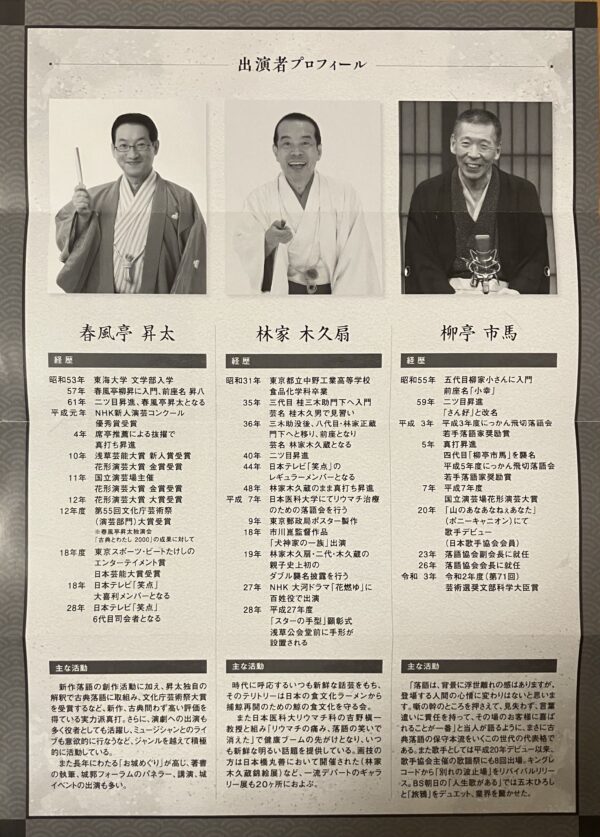 出演者プロフィール
春風亭 昇太
経歴
昭和53年 東海大学 文学部入学
57年 春風亭柳昇に入門、前座名 昇八
61年 二ツ目昇進、春風亭昇太となる
平成元年 NHK新人演芸コンクール
優秀賞受賞
4年 席亭推薦による抜擢で
真打ち昇進
10年 浅草芸能大賞 新人賞受賞
花形演芸大賞 金賞受賞
11年 国立演芸場主催
花形演芸大賞 金賞受賞
12年 花形演芸大賞 大賞受賞
12年度 第55回文化庁芸術祭
(演芸部門)大賞受賞
※春風亭昇太独演会
「古典とわたし 2000」の成果に対して
18年度 東京スポーツ・ビートたけしの
エンターテイメント賞
日本芸能大賞受賞
18年 日本テレビ「笑点」
大喜利メンバーとなる
28年 日本テレビ「笑点」
6代目司会者となる
主な活動
新作落語の創作活動に加え、昇太独自の
解釈で古典落語に取組み、文化庁芸術祭大賞
を受賞するなど、新作、古典問わず高い評価を
得ている実力派真打。さらに、演劇への出演も
多く役者としても活躍し、ミュージシャンとのライ
ブも意欲的に行なうなど、ジャンルを越えて積極
的に活動している。
また長年にわたる「お城めぐり」が高じ、著書
の執筆、城郭フォーラムのパネラー、講演、城
イベントの出演も多い。
林家 木久扇
経歴
昭和31年 東京都立中野工業高等学校
食品化学科卒業
35年 三代目 桂三木助門下へ入門
芸名 桂木久男で見習い
36年 三木助没後、八代目・林家正蔵
門下へと移り、前座となり
芸名 林家木久蔵となる
40年 二ツ目昇進
44年 日本テレビ「笑点」の
レギュラーメンバーとなる
48年 林家木久蔵のまま真打ち昇進
平成 7年 日本医科大学にてリウマチ治療
のための落語会を行う
9年 東京郵政局ポスター製作
18年 市川崑監督作品
「犬神家の一族」出演
19年 林家木久扇・二代・木久蔵の
親子史上初の
ダブル襲名披露を行う
27年 NHK 大河ドラマ「花燃ゆ」に
百姓役で出演
28年 平成27年度
「スターの手型」顕彰式
浅草公会堂前に手形が
設置される
主な活動
時代に呼応するいつも新鮮な話芸をもち、
そのテリトリーは日本の食文化ラーメンから
捕鯨再開のための鯨の食文化を守る会。
また日本医大リウマチ科の吉野槇一
教授と組み「リウマチの痛み、落語の笑いで
消えた」で健康ブームの先がけとなり、いつ
も新鮮な明るい話題を提供している。画技の方
は日本橋丸善において開催された(林家
木久蔵錦絵展)など、一流デパートのギャラ
リー展も20ヶ所におよぶ。
柳亭 市馬
経歴
昭和55年 五代目柳家小さんに入門
前座名「小幸」
59年 二ツ目昇進
「さん好」と改名
平成 3年 平成3年度にっかん飛切落語会
若手落語家奨励賞
5年 真打昇進
四代目「柳亭市馬」を襲名
平成5年度にっかん飛切落語会
若手落語家奨励賞
7年 平成7年度
国立演芸場花形演芸大賞
20年 「山のあなあなねぇあなた」
(ポニーキャニオン)にて
歌手デビュー
(日本歌手協会会員)
23年 落語協会副会長に就任
26年 落語協会会長に就任
令和 3年 令和2年度(第71回)
芸術選奨文部科学大臣賞
主な活動
「落語は、背景に浮世離れの感はありますが、
登場する人間の心情に変わりはないと思いま
す。噺の幹のところを押さえて、見失わず、言葉
遣いに責任を持って、その場のお客様に喜ば
れることが一番」と当人が語るように、まさに古
典落語の保守本流をいくこの世代の代表格で
ある。また歌手としては平成20年デビュー以来、
歌手協会主催の歌謡祭にも8回出場。キングレ
コードから「別れの波止場」をリバイバルリリー
ス。BS朝日の「人生歌がある」では五木ひろし
と「旅鴉」をデュエット、業界を驚かせた。